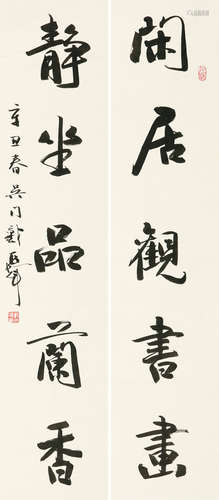 閑居觀書畫
靜坐品蘭香
辛丑春吳門